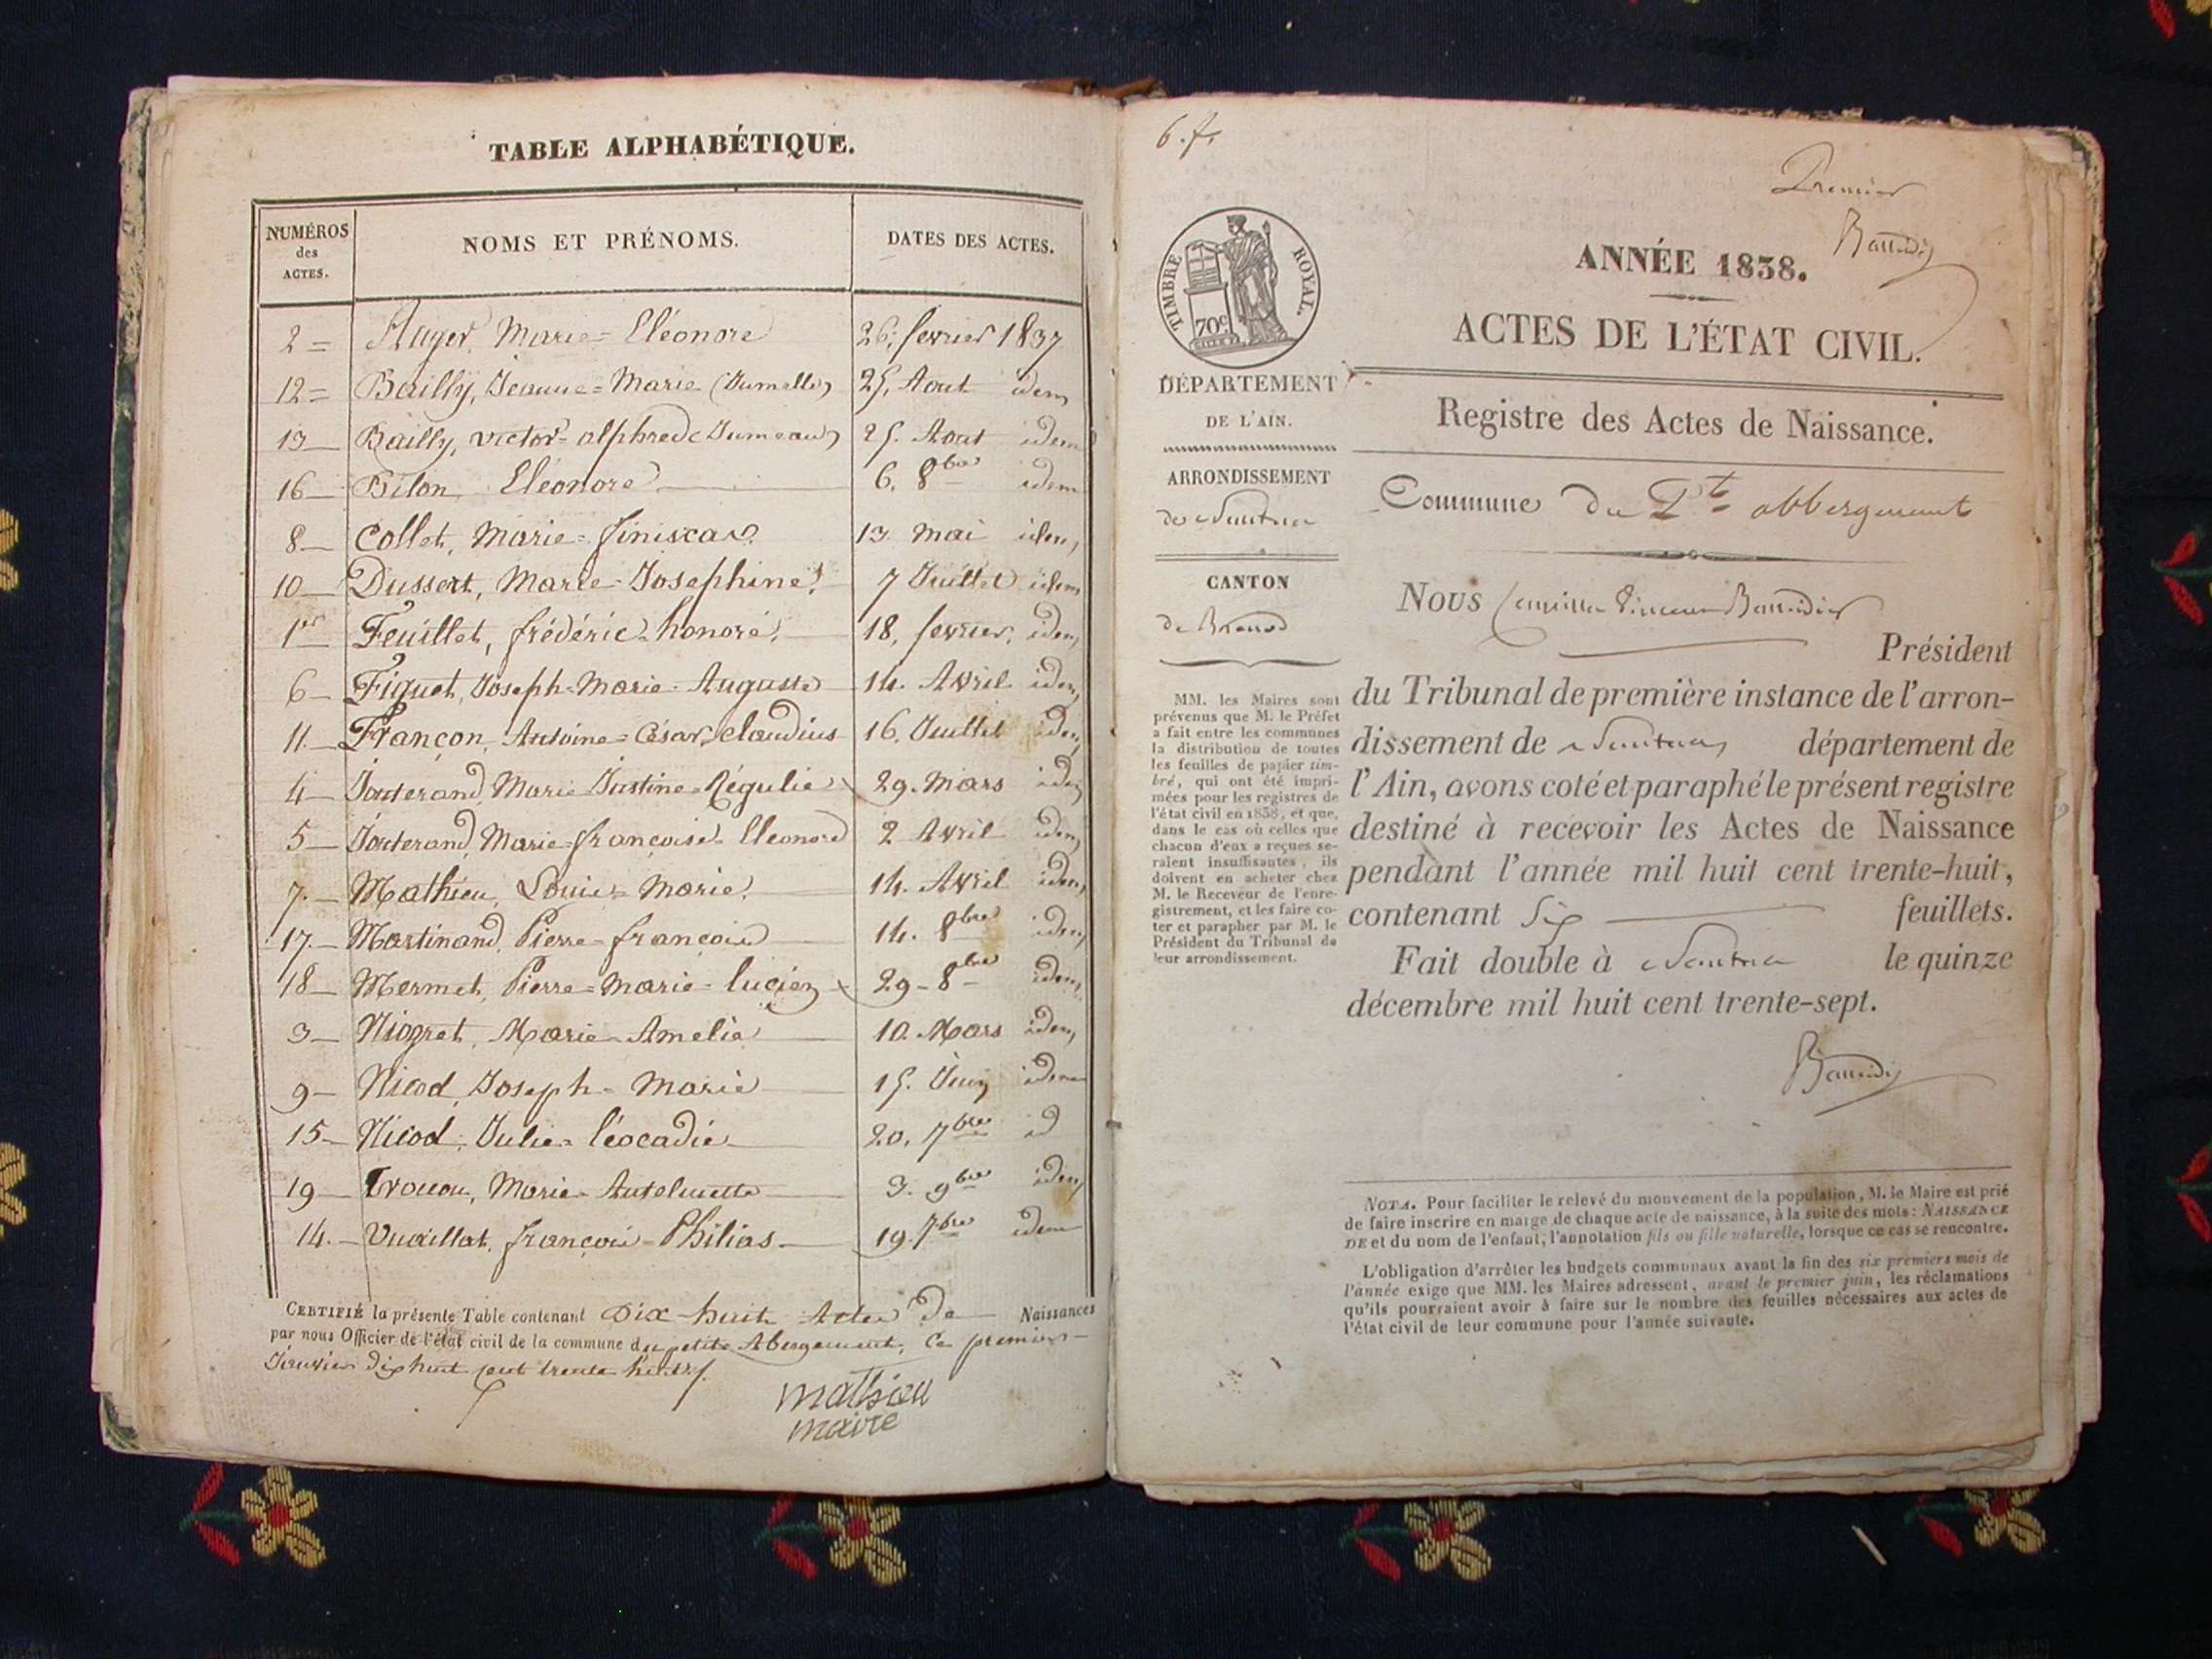 TABLE ALPHABÉTIQUE.
NUMÉROS des ACTES.
NOMS ET PRÉNOMS.
DATES DES ACTES.
2 = Auger, Marie = Eléonore 26. fevrier 1837
12 = Bailly, Jeanne = Marie (Jumelle) 25. Aout idem
13 — Bailly, victor = alphred (Jumeau) 25. Aout idem
16 — Bilon, Eléonore 6. 8bre idem
8 — Collet, Marie = 13 mai idem
10 — Dussert, Marie = Josephine 7 Juillet idem
1er Feuillet, frédéric = honoré 18, fevrier, idem
6 — Figuet, Joseph = Marie = Auguste 14. Avril idem
11. — Françon, Antoine = César, claudius 16. Juillet idem
4 — Jauterand, Marie Justine = Régulie 29. Mars idem
5 — Jauterand, Marie = françoise = Eleonore 2 Avril idem
7. — Mathieu, Louis = Marie 14. Avril idem
17. — Martinand, Pierre = françois 14. 8bre idem
18 — Mermet, Pierre = Marie = lucien 29 - 8bre idem
3 — Niogret, Marie = Amelie 10. Mars idem
9 — Nicod, Joseph = Marie 15. Juin idem
15 — Nicod, Julie = léocadie 20, 7bre id
19 — Marie = 3. 9bre idem
14. — Vuaillat, françois = Philias 19. 7bre idem
CERTIFIÉ la présente Table contenant Dix-huit Actes De Naissances
par nous Officier de l'état civil de la commune du petit Abergement, Ce premier
Janvier dix huit cent trente huit
mathieu
maire
6. f.
Premier
Baudin
TIMBRE ROYAL.
70c
ANNÉE 1838.
ACTES DE L'ÉTAT CIVIL.
DÉPARTEMENT
DE L'AIN.
ARRONDISSEMENT
de Nantua
CANTON
de Brenod
MM. les Maires sont
prévenus que M. le Préfet
a fait entre les communes
la distribution de toutes
les feuilles de papier tim-
bré, qui ont été impri-
mées pour les registres de
l'état civil en 1838, et que,
dans le cas où celles que
chacun d'eux a reçues se-
raient insuffisantes, ils
doivent en acheter chez
M. le Receveur de l'enre-
gistrement, et les faire co-
ter et parapher par M. le
Président du Tribunal de
leur arrondissement.
Registre des Actes de Naissance.
Commune du Pt abbergement
Nous
Président
du Tribunal de première instance de l'arron-
dissement de Nantua, département de
l'Ain, avons coté et paraphé le présent registre
destiné à recevoir les Actes de Naissance
pendant l'année mil huit cent trente-huit,
contenant Six feuillets.
Fait double à Nantua le quinze
décembre mil huit cent trente-sept.
NOTA. Pour faciliter le relevé du mouvement de la population, M. le Maire est prié
de faire inscrire en marge de chaque acte de naissance, à la suite des mots: NAISSANCE
DE et du nom de l'enfant, l'annotation fils ou fille naturelle, lorsque ce cas se rencontre.
L'obligation d'arrêter les budgets communaux avant la fin des six premiers mois de
l'année exige que MM. les Maires adressent, avant le premier juin, les réclamations
qu'ils pourraient avoir à faire sur le nombre des feuilles nécessaires aux actes de
l'état civil de leur commune pour l'année suivante.